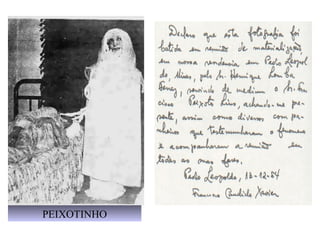 Declaro que esta fotografia foi
batida em reunião de materialização
em nossa residencia em Pedro Leopol
do, Minas, pelo
Ferraz, servindo de medium o
cisco Peixoto Lins, achando-me pre-
sente, assim como diversos compa-
nheiros que testemunharam o fenomeno
e acompanharam a reunião em
todas as suas fases.
Pedro Leopoldo, 13-12-54
Francisco Candido Xavier
PEIXOTINHO